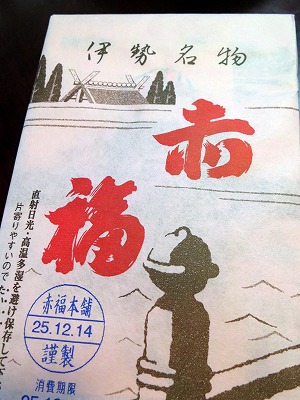 伊勢名物
赤
福
直射日光・高温多湿を避け保存して
片寄りやすいので
赤福本舗
25.12.14
謹製
消費期限